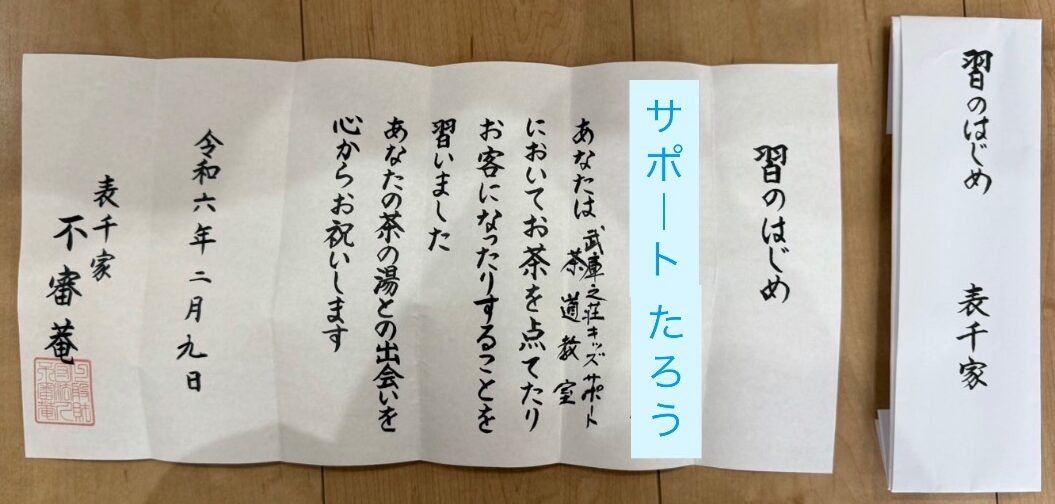 習のはじめ
サポート たろう
あなたは 武庫之荘キッズサポート
茶道教室
においてお茶を点てたり
お客になったりすることを
習いました
あなたの茶の湯との出会いを
心からお祝いします
令和六年二月九日
表千家
不審菴
習のはじめ
表千家